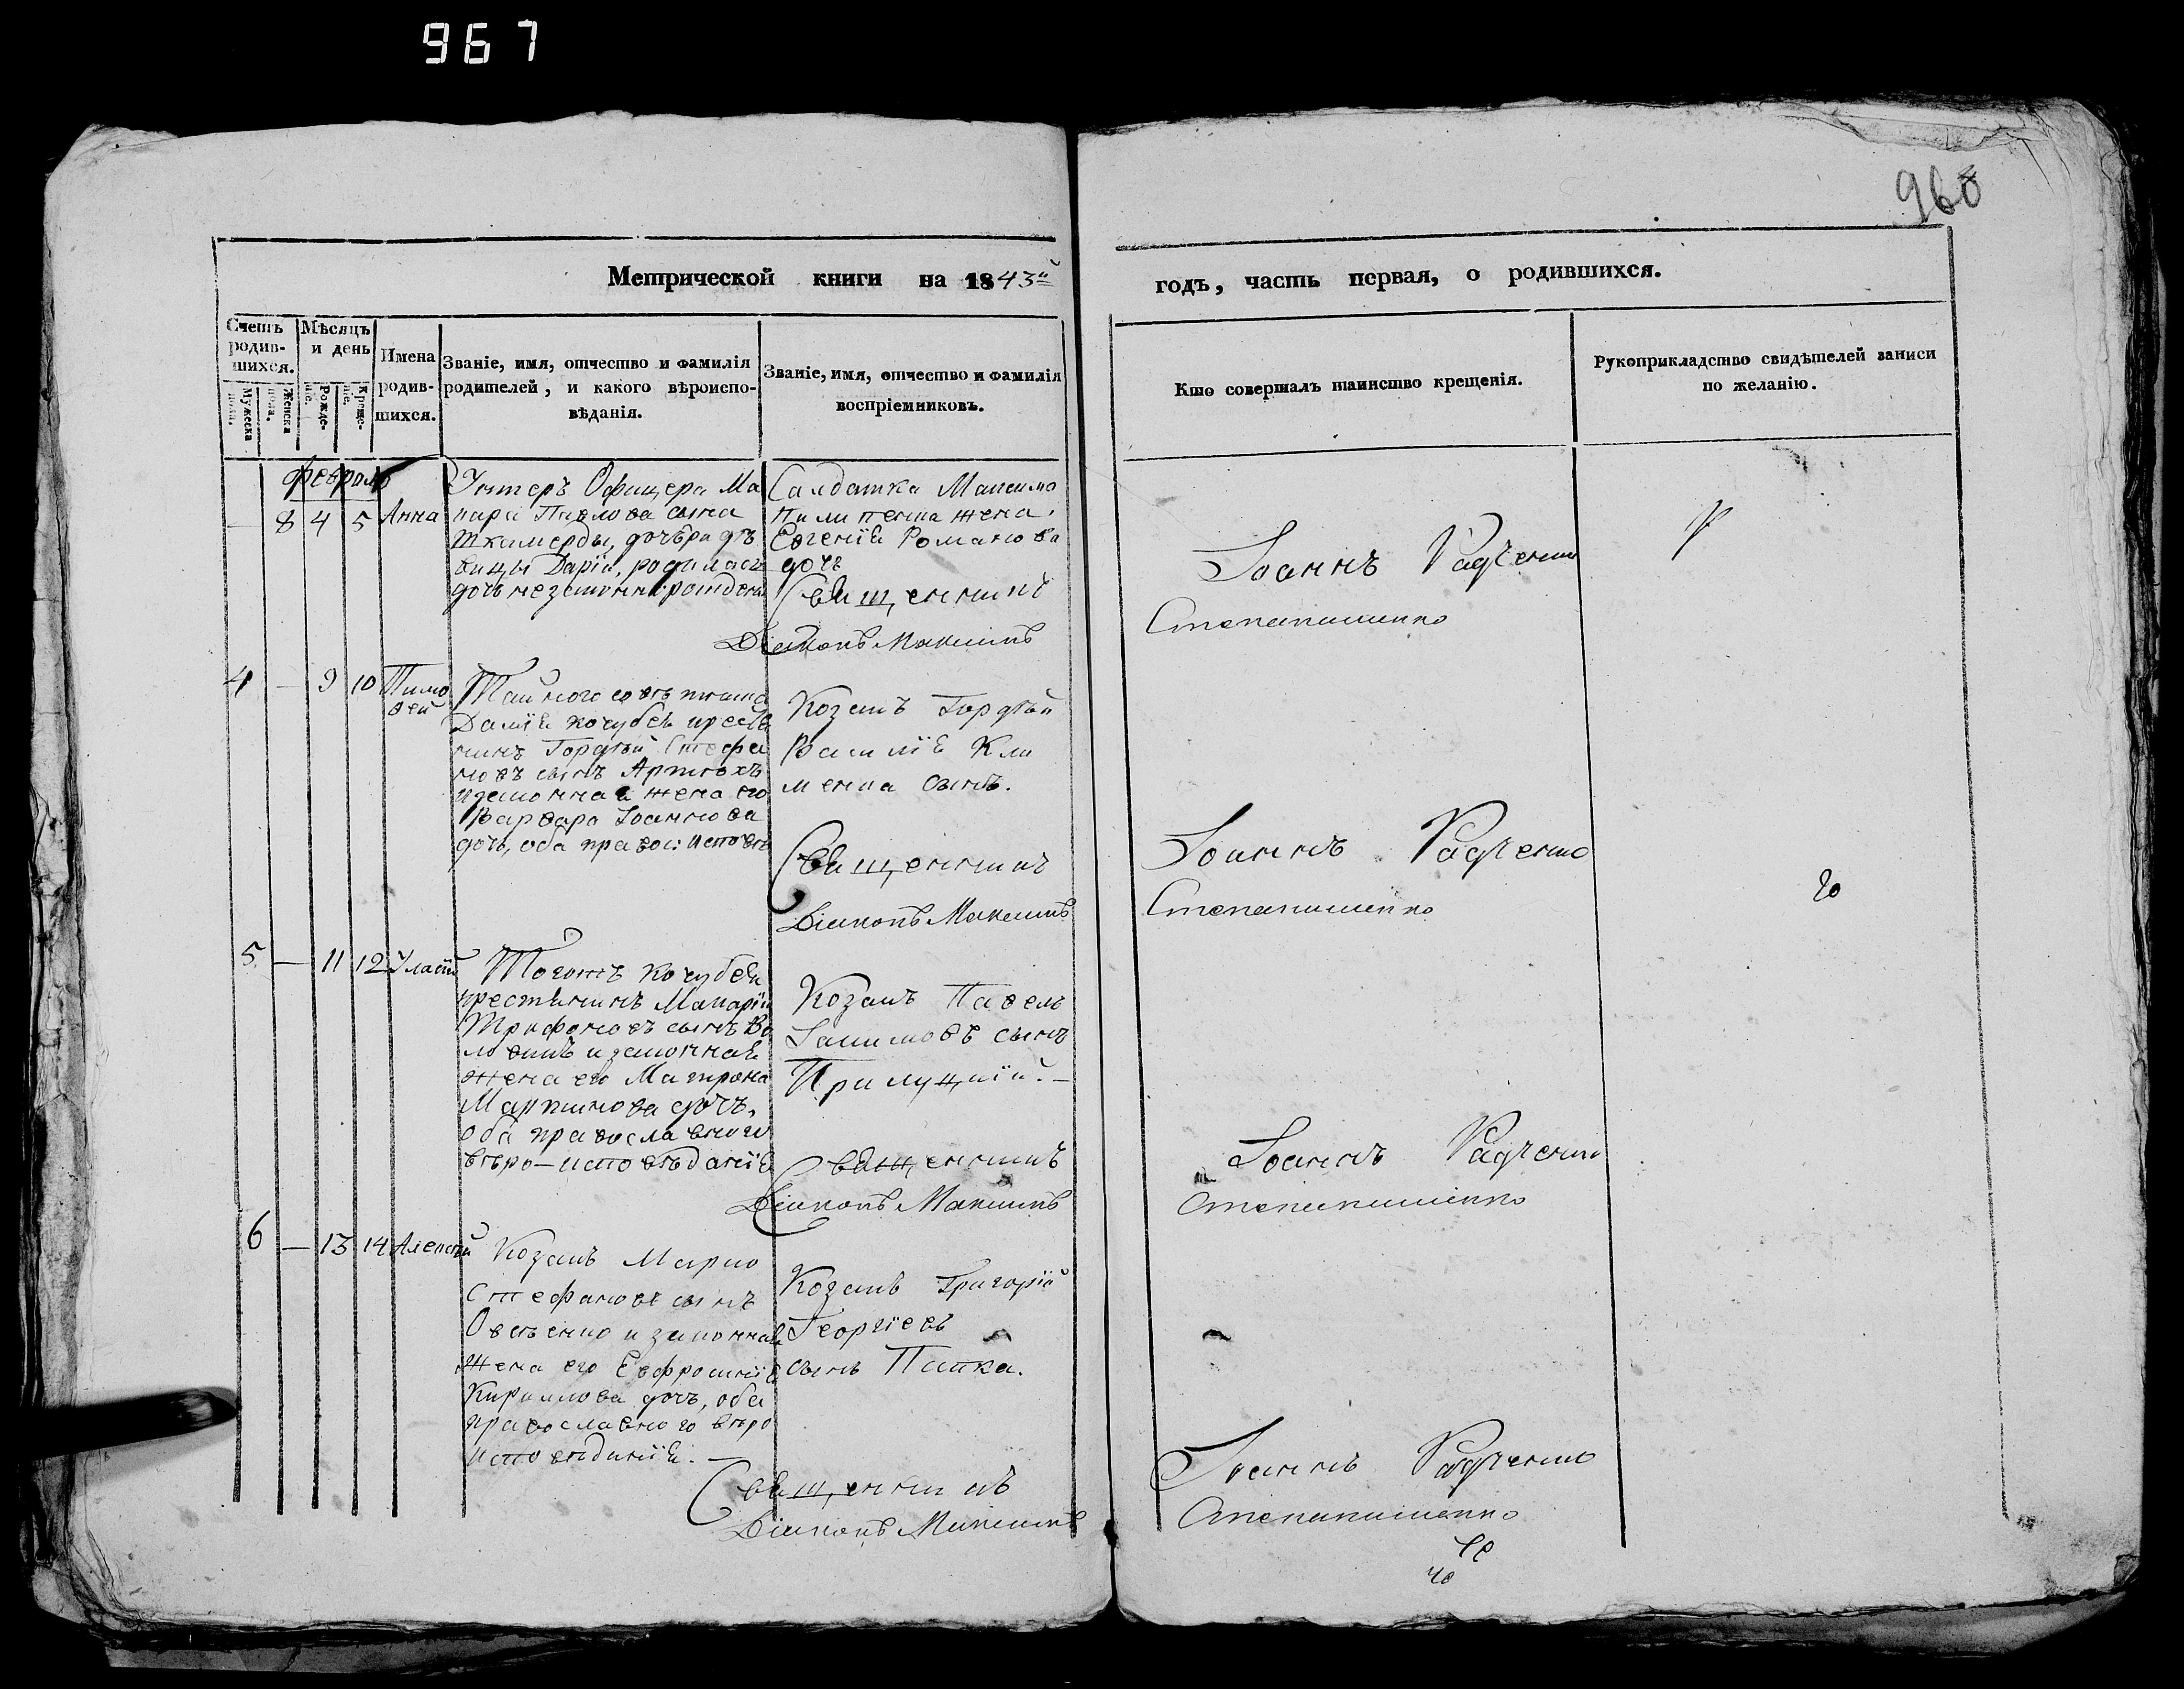 967
968
Метрической книги на 1843й годъ, часть первая, о родившихся.
Счетъ родив-шихся.
Мужеска пола.
Женска пола.
Мѣсяцъ и день
Рожде-ніе.
Креще-ніе.
Имена родив-шихся.
Званіе, имя, отчество и фамилія родителей, и какого вѣроиспо-вѣданія.
Званіе, имя, отчество и фамилія воспріемниковъ.
Кто совершалъ таинство крещенія.
Рукоприкладство свидѣтелей записи по желанію.
февраль
— 8 4 5 Анна
Унтеръ Офицера Ма
кара Павлова сына
дочъ
вицы Дарїи, родилась
дочь незаконнорожден
Салдатка Максима
Пилипенка жена
Евгенїя Романова
дочь
Священникъ Іоаннъ Радченко
Діаконъ Максимъ
4 — 9 10 Тимо
ѳей
Тайного совѣтника
Кочубея кресть
нинъ Гордѣй Стефа
новъ сынъ Артюхъ
и законная жена его
Варвара Іоаннова
дочь, оба правос: исповѣ
Козакъ Гордѣй
Василїя Кли
менка сынъ.
Священникъ Іоаннъ Радченко
Діаконъ Максимъ
5 — 11 12 Уласій
Тогожъ Кочубея
крестянинъ Макарїй
Трифоновъ сынъ Во
и законная
жена его Матрона
Мартинова дочъ,
оба православного
вѣро—исповѣданїя
Козакъ Павелъ
сынъ
Прилуцкїй.—
Священникъ Іоаннъ Радченко
Діаконъ Максимъ
6 — 13 14 Алексѣй
Козакъ Марко
Стефановъ сынъ
Овсѣенко и законная
жена его Евфросинїя
Кириллова дочъ, оба
православного вѣро
исповѣданїя.—
Козакъ Григорїй
Георгїевъ
сынъ Папка.
Священникъ Іоаннъ Радченко
Діаконъ Максимъ